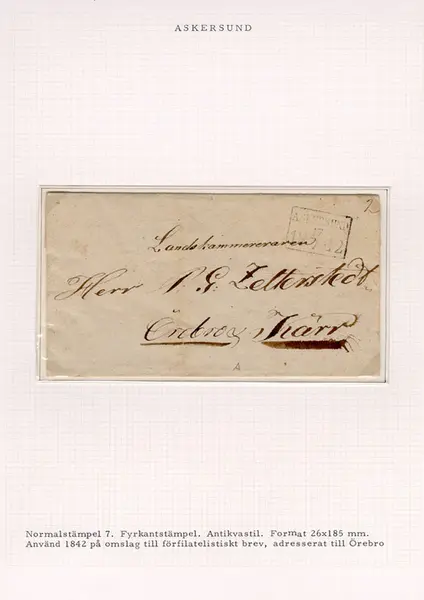 ASKERSUND
Landskammereraren
Herr P. G. Zetterstedt
Örebro & Kärr
Normalstämpel 7. Fyrkantstämpel. Antikvastil. Format 26x185 mm.
Använd 1842 på omslag till förfilatelistiskt brev, adresserat till Örebro